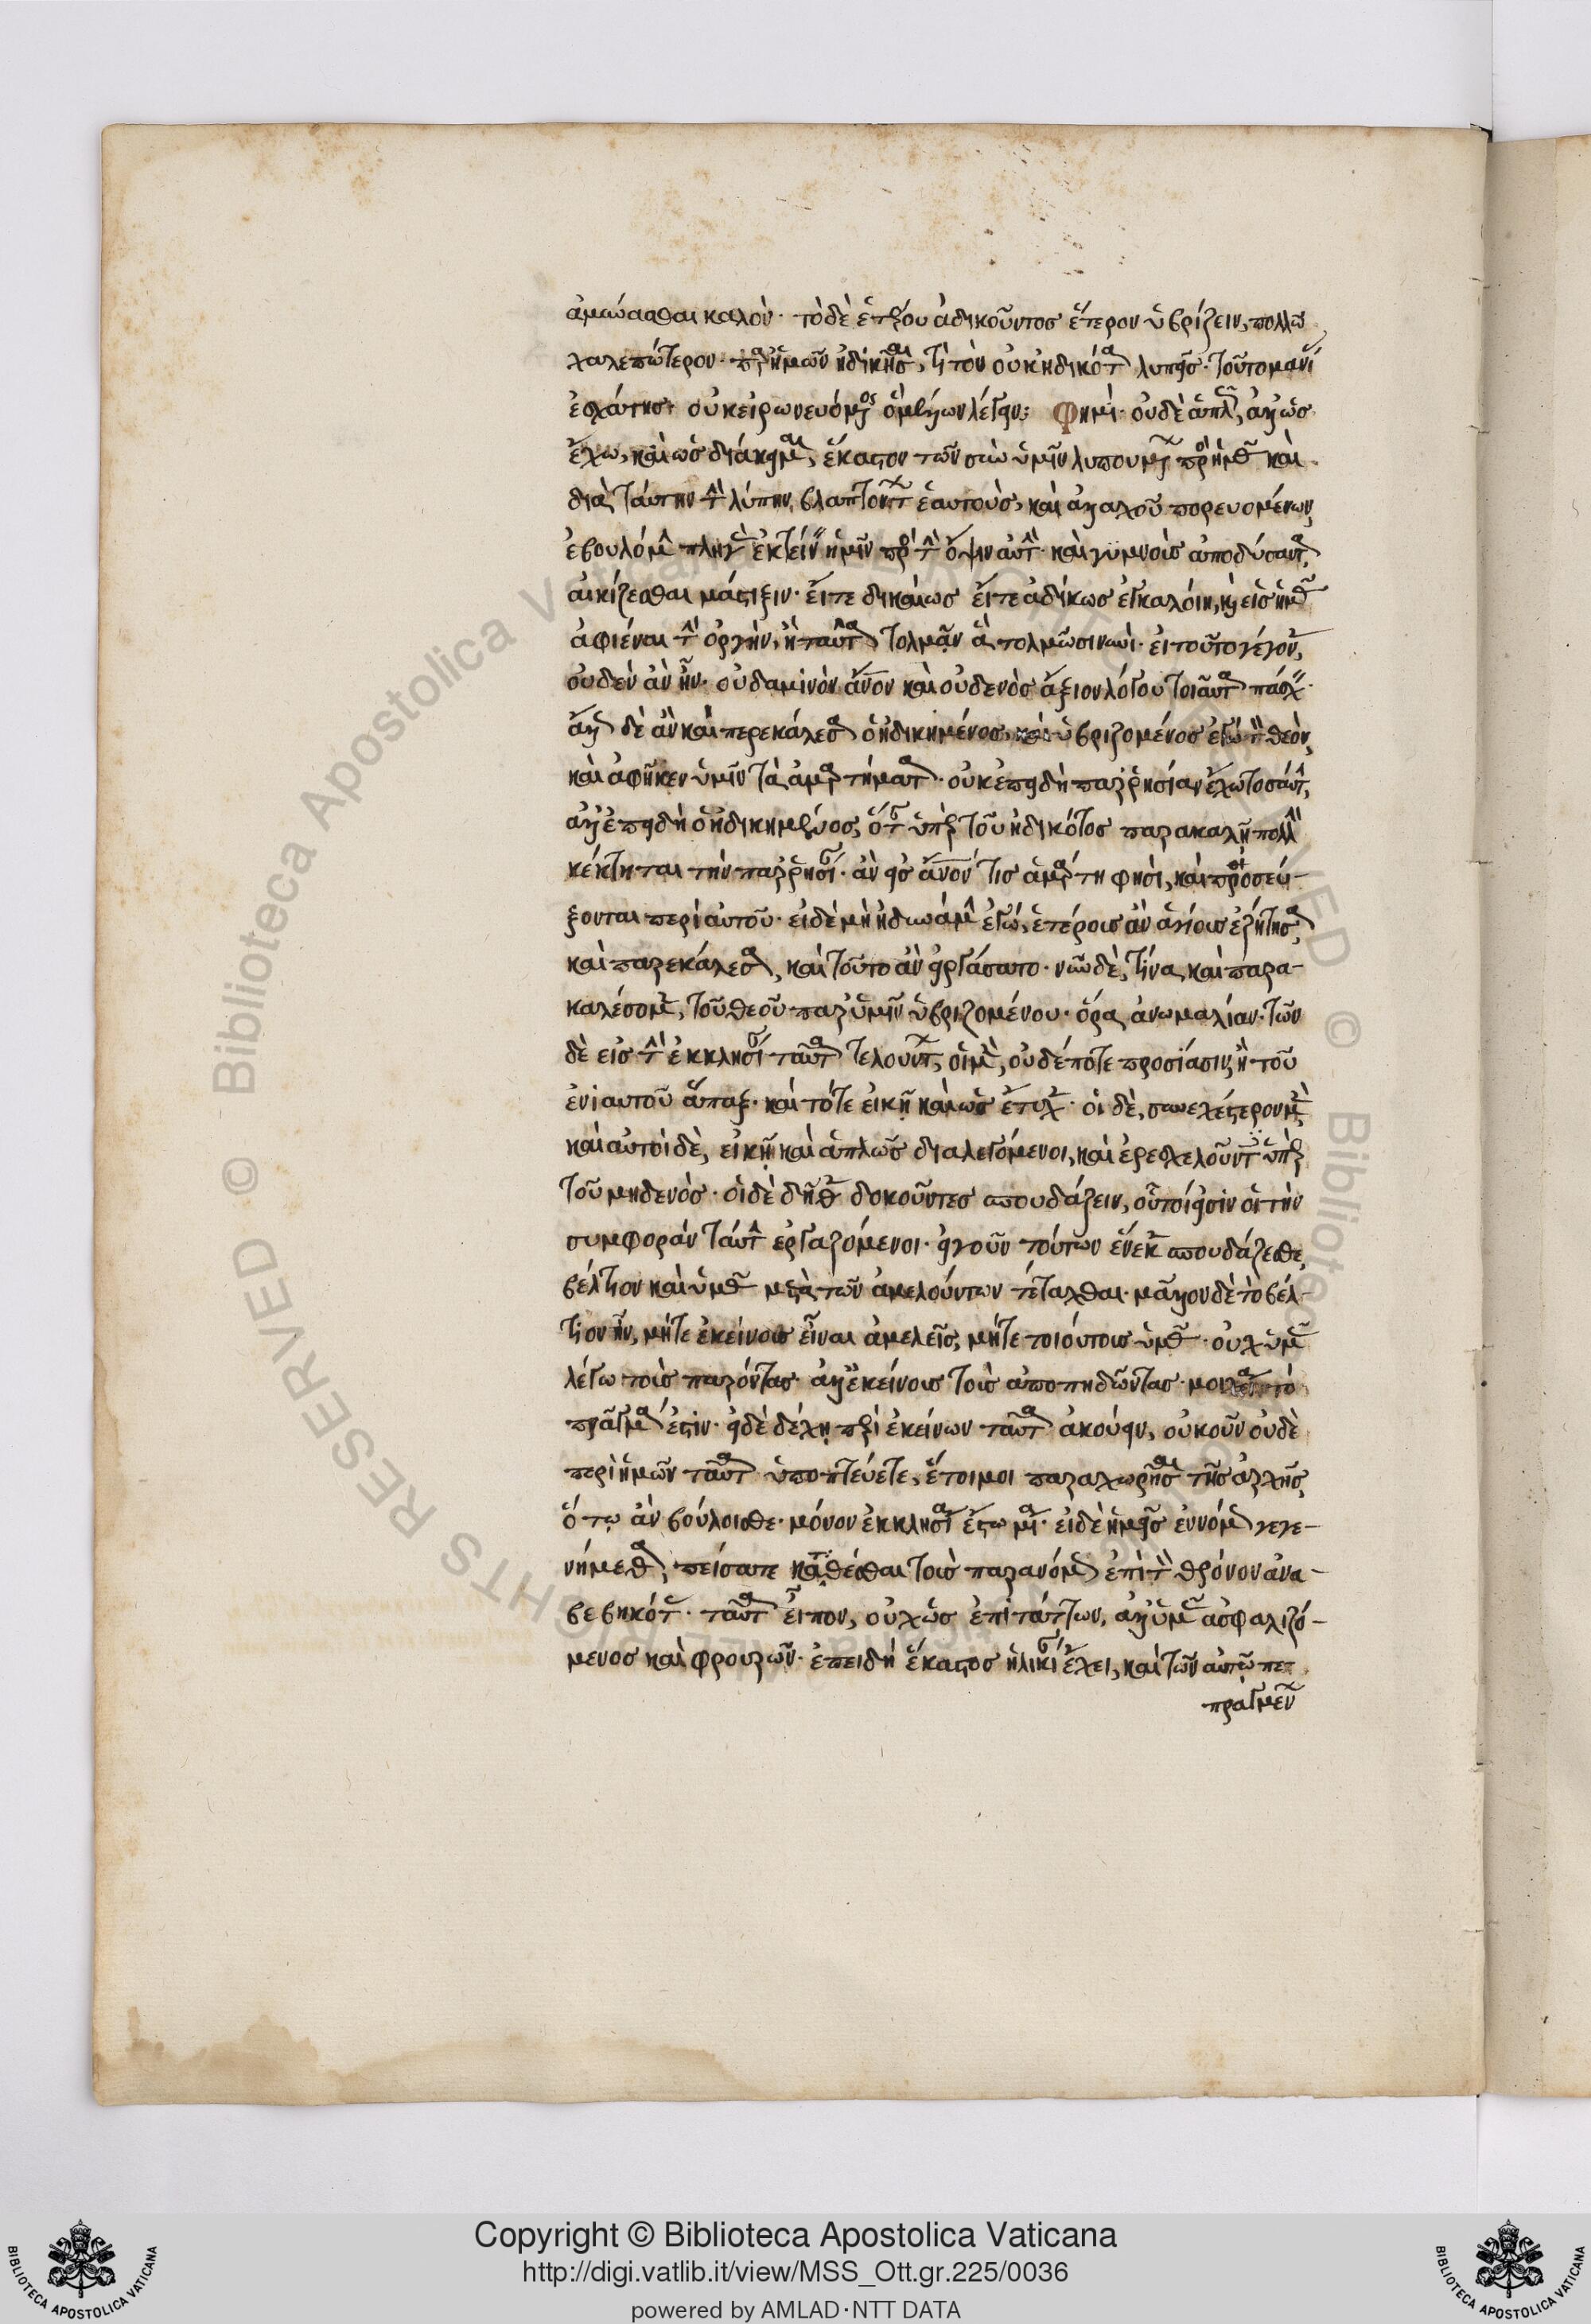 ἀμύνασθαι καλόν· τὸ δὲ ἑτέρου ἀδικοῦντος ἕτερον ὑβρίζειν, πολλῷ
χαλεπώτερον· παρ' ἡμῶν ἠδίκησαι, τί τὸν οὐκ ἠδικότα λυπεῖς· τοῦτο μανί
ἐσχάτης· οὐκ εἰρωνευόμενος ὃ μέλλων λέγειν: Φημί· οὐδὲ ἁπλῶς, ἀλλ' ὡς
ἔχω, καὶ ὡς διάκειμαι, ἕκαστον τῶν σὺν ὑμῖν λυπουμένων πρὸς ἡμᾶς καὶ
διὰ ταύτην τὴν λύπην, βλαπτόντων ἑαυτοὺς, καὶ ἀλλαχοῦ πορευομένων,
ἐβουλόμην πληγὰς ἐκτείνειν ἡμῖν πρὸς τὴν ὄψιν αὐτὴν· καὶ γυμνοὺς ἀποδύσαντα,
αἰκίζεσθαι μάστιξιν· εἴτε δικαίως εἴτε ἀδίκως ἐγκαλοίη, κ εἰς ἡμᾶς
ἀφιέναι τὴν ὀργὴν, ἢ ταῦτα τολμᾶν ἃ τολμῶσι νυνὶ· εἰ τοῦτο γέγονεν,
οὐδὲν ἂν ἦν· οὐδαμινὸν ἄνον καὶ οὐδενὸς ἄξιον λόγου τοιαῦτα πάσχειν·
δὲ ἂν καὶ περεκάλεσα ὁ ἠδικημένος, καὶ ὑβριζομένος ἐγὼ τὸν θεὸν,
καὶ ἀφῆκεν ὑμῖν τὰ ἁμαρτήματα· οὐκ ἐπειδὴ παρρησίαν ἔχω τοσαύτην,
ἀλλ' ἐπειδὴ ὁ ἠδικημένος, ὅταν ὑπὲρ τοῦ ἠδικότος παρακαλῇ πολλὴν
κέκτηται τὴν παρρησίαν· ἂν εἰς ἄνον τις ἁμάρτη φησὶ, καὶ προσεύ-
ξονται περὶ αὐτοῦ· εἰ δὲ μὴ ἠδυνάμην ἐγὼ, ἑτέρους ἂν ἁγίους ἐζήτησα,
καὶ παρεκάλεσα, καὶ τοῦτο ἂν εἰργάσατο· νῦν δὲ, τίνα καὶ παρα-
καλέσομεν, τοῦ θεοῦ παρ' ὑμῖν ὑβριζομένου· ὅρα ἀνωμαλίαν· τῶν
δὲ εἰς τὴν ἐκκλησίαν ταύτην τελούντων, οἱ μὲν, οὐδέποτε προσίασιν, ἢ τοῦ
ἐνιαυτοῦ ἅπαξ· καὶ τότε εἰκῇ καὶ ὡς ἔτυχε· οἱ δὲ, συνεχέστερον μὲν
καὶ αὐτοὶ δὲ, εἰκῇ καὶ ἁπλῶς διαλεγόμενοι, καὶ ἐρεσχελοῦντες ὑπὲρ
τοῦ μηδενὸς· οἱ δὲ δῆθεν δοκοῦντες σπουδάζειν, οὗτοί εἰσιν οἱ τὴν
συμφορὰν ταύτην ἐργαζόμενοι· εἰ γοῦν τούτων ἕνεκεν σπουδάζεσθε,
βέλτιον καὶ ὑμᾶς μετὰ τῶν ἀμελούντων τετάχθαι· μᾶλλον δὲ τὸ βέλ-
τιον ἦν, μήτε ἐκείνους εἶναι ἀμελεῖς, μήτε τοιούτους ὑμᾶς· οὐχ ὑμᾶς
λέγω τοὺς παρόντας· ἀλλ' ἐκείνους τοὺς ἀποπηδῶντας· τὸ
πρᾶγμα ἐστὶν· εἰ δὲ δέχῃ περὶ ἐκείνων ταῦτα ἀκούειν, οὐκοῦν οὐδὲ
περὶ ἡμῶν ταῦτα ὑποπτεύετε, ἕτοιμοι παραχωρῆσαι τῆς ἀρχῆς,
ὅτῳ ἂν βούλοισθε· μόνον ἐκκλησία ἔστω μία· εἰ δὲ ἡμεῖς ἐννόμως γεγε-
νήμεθα, πείσατε καταθέσθαι τοὺς παρανόμως ἐπὶ τὸν θρόνον ἀνα-
βεβηκότας· ταῦτα εἶπον, οὐχ ὡς ἐπιτάττων, ἀλλ' ὑμᾶς ἀσφαλιζό-
μενος καὶ φρουρῶν· ἐπειδὴ ἕκαστος ἡλικίαν ἔχει, καὶ τῶν αὐτῷ πε
πραγμένων
Copyright © Biblioteca Apostolica Vaticana
http://digi.vatlib.it/view/MSS_Ott.gr.225/0036
powered by AMLAD·NTT DATA